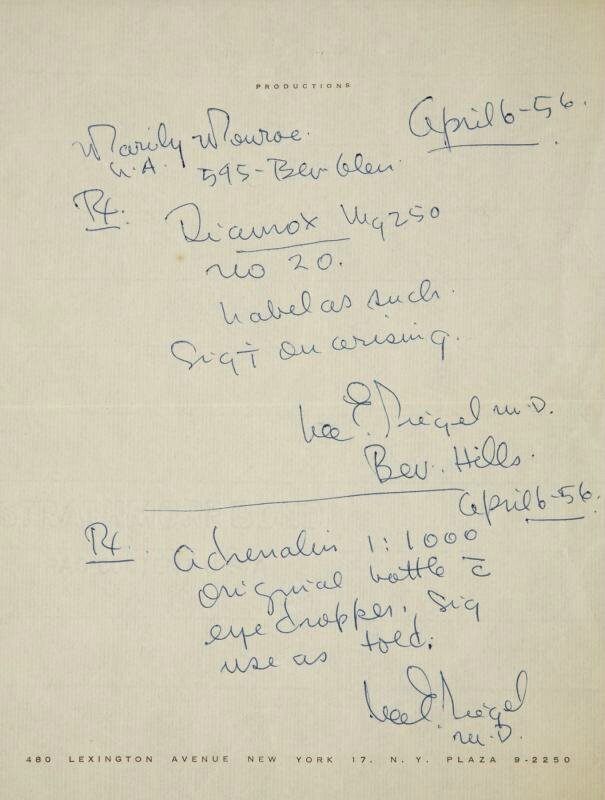 PRODUCTIONS
April 6-56.
Marily Monroe.
L.A. 595-Bev Glen.
Rx. Diamox Mg 250
no 20.
Label as such.
Sig i on arising.
Lee E. Siegel M.D.
Bev. Hills.
April 6-56.
Rx. Adrenalin 1:1000
original bottle c̄
eye dropper. Sig
use as told.
Lee E. Siegel
M.D.
480 LEXINGTON AVENUE NEW YORK 17, N. Y. PLAZA 9-2250